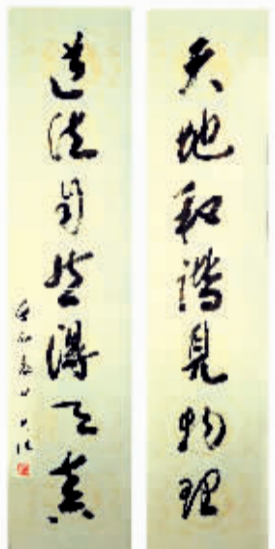 天地和谐見物理
道法自然得天真